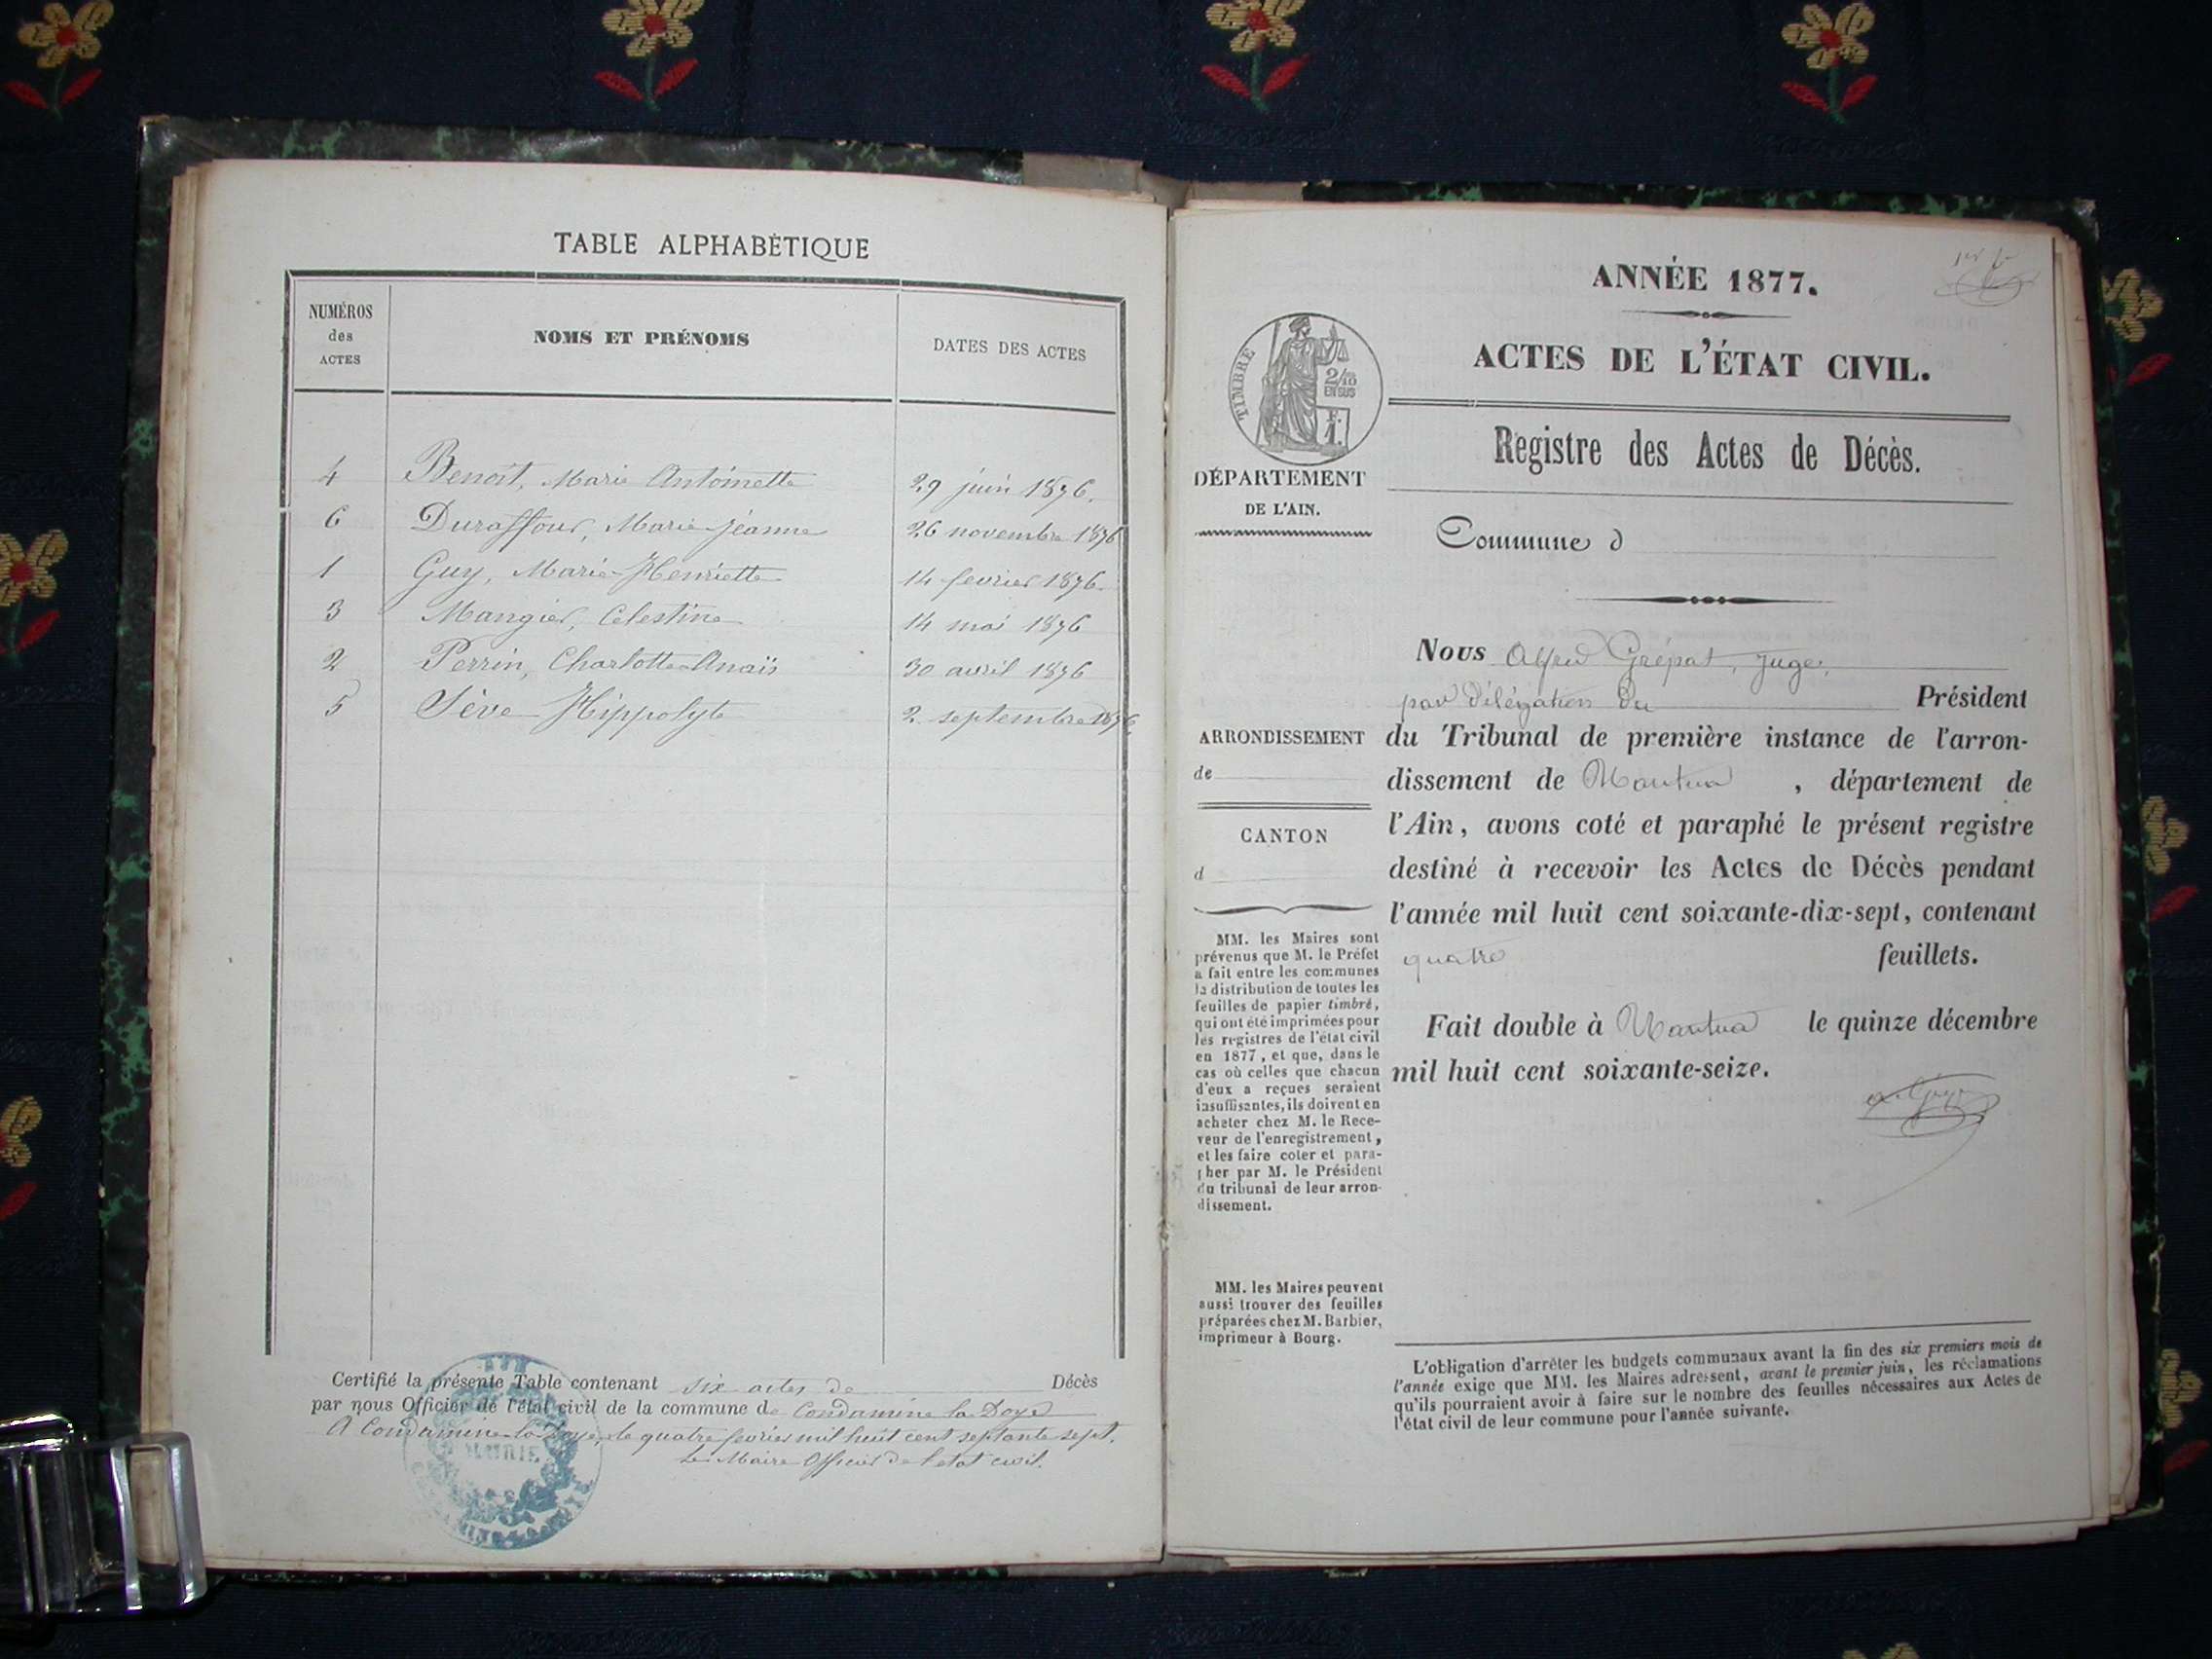 TABLE ALPHABÉTIQUE
NUMÉROS
des
ACTES
NOMS ET PRÉNOMS
DATES DES ACTES
4 Benoit, Marie Antoinette 29 juin 1876.
6 Duraffour, Marie-Jéanne 26 novembre 1876
1 Guy, Marie-Henriette 14 fevrier 1876.
3 Mangier, Célestine 14 mai 1876
2 Perrin, Charlotte-Anaïs 30 avril 1876
5 Sève Hippolyte 2 septembre 1876.
Certifié la présente Table contenant six actes de Décès
par nous Officier de l'état civil de la commune de Condamine la Doye
A Condamine-la-Doye, le quatre fevrier mil huit cent septante sept.
Le Maire Officier de l'etat civil.
MAIRIE
ANNÉE 1877.
ACTES DE L'ÉTAT CIVIL.
TIMBRE
2/10
EN SUS
F.
1.
Registre des Actes de Décès.
DÉPARTEMENT
DE L'AIN.
Commune d
Nous Alfred Grépat, juge,
par délégation du Président
du Tribunal de première instance de l'arron-
dissement de Nantua , département de
l'Ain, avons coté et paraphé le présent registre
destiné à recevoir les Actes de Décès pendant
l'année mil huit cent soixante-dix-sept, contenant
quatre feuillets.
Fait double à Nantua le quinze décembre
mil huit cent soixante-seize.
ARRONDISSEMENT
de
CANTON
d
MM. les Maires sont
prévenus que M. le Préfet
a fait entre les communes
la distribution de toutes les
feuilles de papier timbré,
qui ont été imprimées pour
les registres de l'état civil
en 1877, et que, dans le
cas où celles que chacun
d'eux a reçues seraient
insuffisantes, ils doivent en
acheter chez M. le Rece-
veur de l'enregistrement,
et les faire coter et para-
pher par M. le Président
du tribunal de leur arron-
dissement.
MM. les Maires peuvent
aussi trouver des feuilles
préparées chez M. Barbier,
imprimeur à Bourg.
L'obligation d'arrêter les budgets communaux avant la fin des six premiers mois de
l'année exige que MM. les Maires adressent, avant le premier juin, les réclamations
qu'ils pourraient avoir à faire sur le nombre des feuilles nécessaires aux Actes de
l'état civil de leur commune pour l'année suivante.